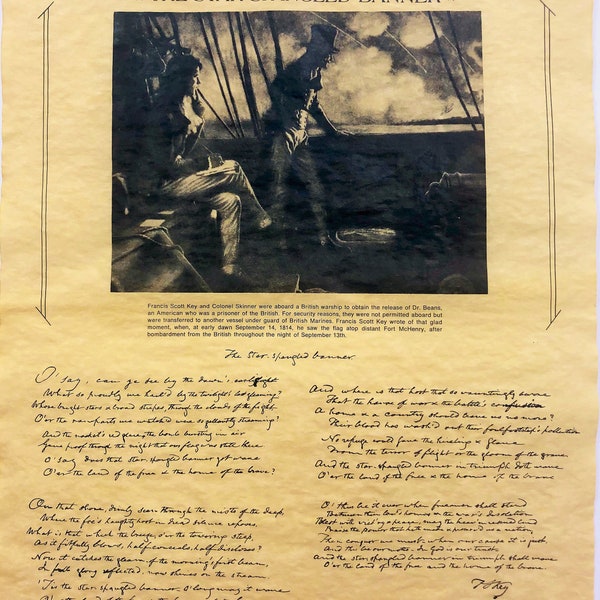 THE STAR SPANGLED BANNER
Francis Scott Key and Colonel Skinner were aboard a British warship to obtain the release of Dr. Beans,
an American who was a prisoner of the British. For security reasons, they were not permitted aboard but
were transferred to another vessel under guard of British Marines. Francis Scott Key wrote of that glad
moment, when, at early dawn September 14, 1814, he saw the flag atop distant Fort McHenry, after
bombardment from the British throughout the night of September 13th.
The Star-spangled banner
O! say, can ye see by the dawn's
What so proudly we hail'd by the twilight's last gleaming?
Whose bright stars & broad stripes, through the clouds of the fight
O'er the ramparts we watch'd were so gallantly streaming?
And the rocket's red glare, the bomb bursting in air
Gave proof through the night that our flag was still there
O! say does that star-spangled banner yet wave
O'er the land of the free & the home of the brave?
On that shore, dimly seen through the mists of the deep,
Where the foe's haughty host in dread silence reposes,
What is that which the breeze, o'er the towering steep,
As it fitfully blows, half conceals, half discloses?
Now it catches the gleam of the morning's first beam,
In full glory reflected, now shines on the stream
'Tis the star-spangled banner, O! long may it wave
O'er the land of the free & the home of the brave!
And where is that host that so vauntingly swore
That the havoc of war & the battle's confusion
A home & a country should leave us no more?
Their blood has wash'd out their foul footstep's pollution
No refuge could save the hireling & slave
From the terror of flight or the gloom of the grave
And the star-spangled banner in triumph doth wave
O'er the land of the free & the home of the brave
O! thus be it ever when freemen shall stand
Between their lov'd homes & the war's desolation
Blest with vict'ry & peace may the heav'n rescued land
Praise the power that hath made & preserv'd us a nation
Then conquer we must, when our cause it is just
And this be our motto - In God is our trust
And the star-spangled banner in triumph shall wave
O'er the land of the free and the home of the brave
F S Key